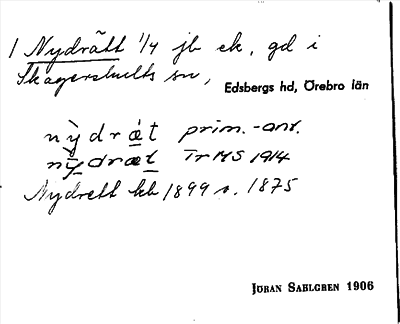 1 Nydrätt 1/4 jb ek, gd i
Skagershults sn,
Edsbergs hd, Örebro län
nỳdræ̀t prim.-ant.
nỳdræt TrMS 1914
Nydrett kb 1899 s. 1875
JÖRAN SAHLGREN 1906